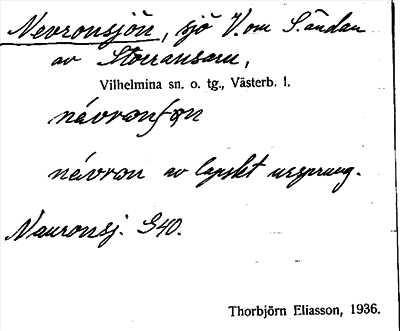 Nevronsjön, sjö V. om S. ändan
av Storransarn,
Vilhelmina sn. o. tg., Västerb. l.
névron av lapskt ursprung.
Nauronsj. G40.
Thorbjörn Eliasson, 1936.